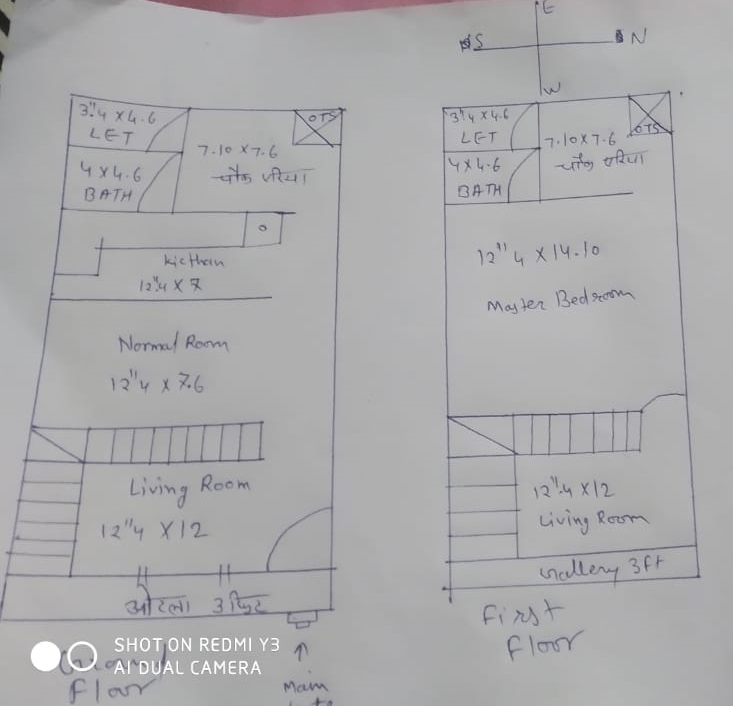 E
S N
W
3"4 X 4.6
LET
OTS
7.10 X 7.6
चौक एरिया
4 X 4.6
BATH
Kicthan
12"4 X 7
Normal Room
12"4 X 7.6
Living Room
12"4 X 12
ओटला 3 फिट
Ground
Floor
Main
3"4 X 4.6
LET
OTS
7.10 X 7.6
चौक एरिया
4 X 4.6
BATH
12"4 X 14.10
Master Bedroom
12"4 X 12
Living Room
Gallery 3 Ft
First
Floor
SHOT ON REDMI Y3
AI DUAL CAMERA